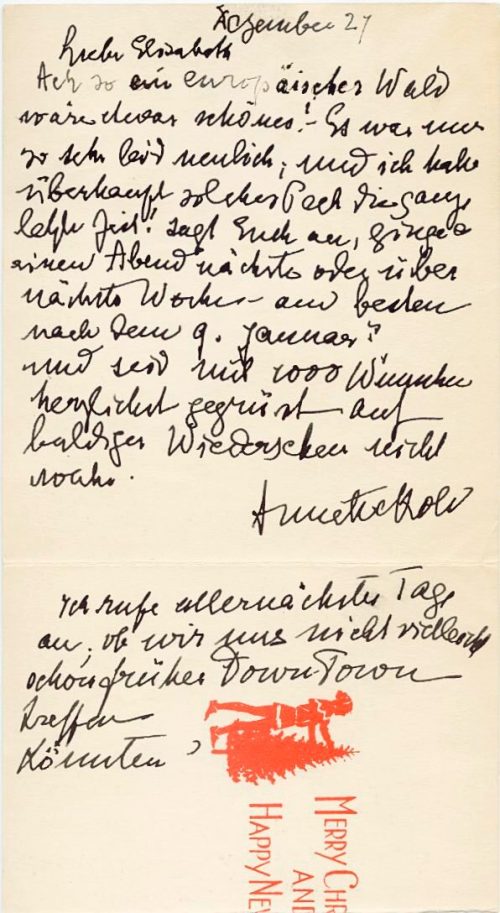 Dezember 27
Liebe Elisabeth
Ach so ein europäischer Wald
wäre etwas schönes! - Es war mir
so sehr leid neulich, und ich habe
überhaupt solches Pech die ganze
letzte Zeit! sagt Euch an, ginge
einen Abend nächste oder über
nächste Woche - am besten
nach dem 9. Januar?
und seid mit 1000 Wünschen
herzlichst gegrüsst auf
baldiges Wiedersehen nicht
wahr.
Annette Kolb
Ich rufe allernächster Tage
an, ob wir uns nicht vielleicht
schon früher Down Town
treffen
könnten?
MERRY CHR
AND
HAPPY NEW